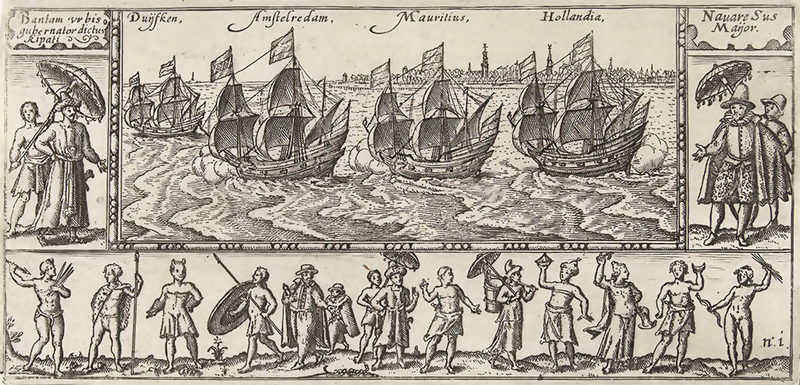 Bantam vrbis
gubernator dictus
Kipati
Duijfken, Amstelredam, Mauritius, Hollandia,
Navare Sus
Maijor.
n. i.